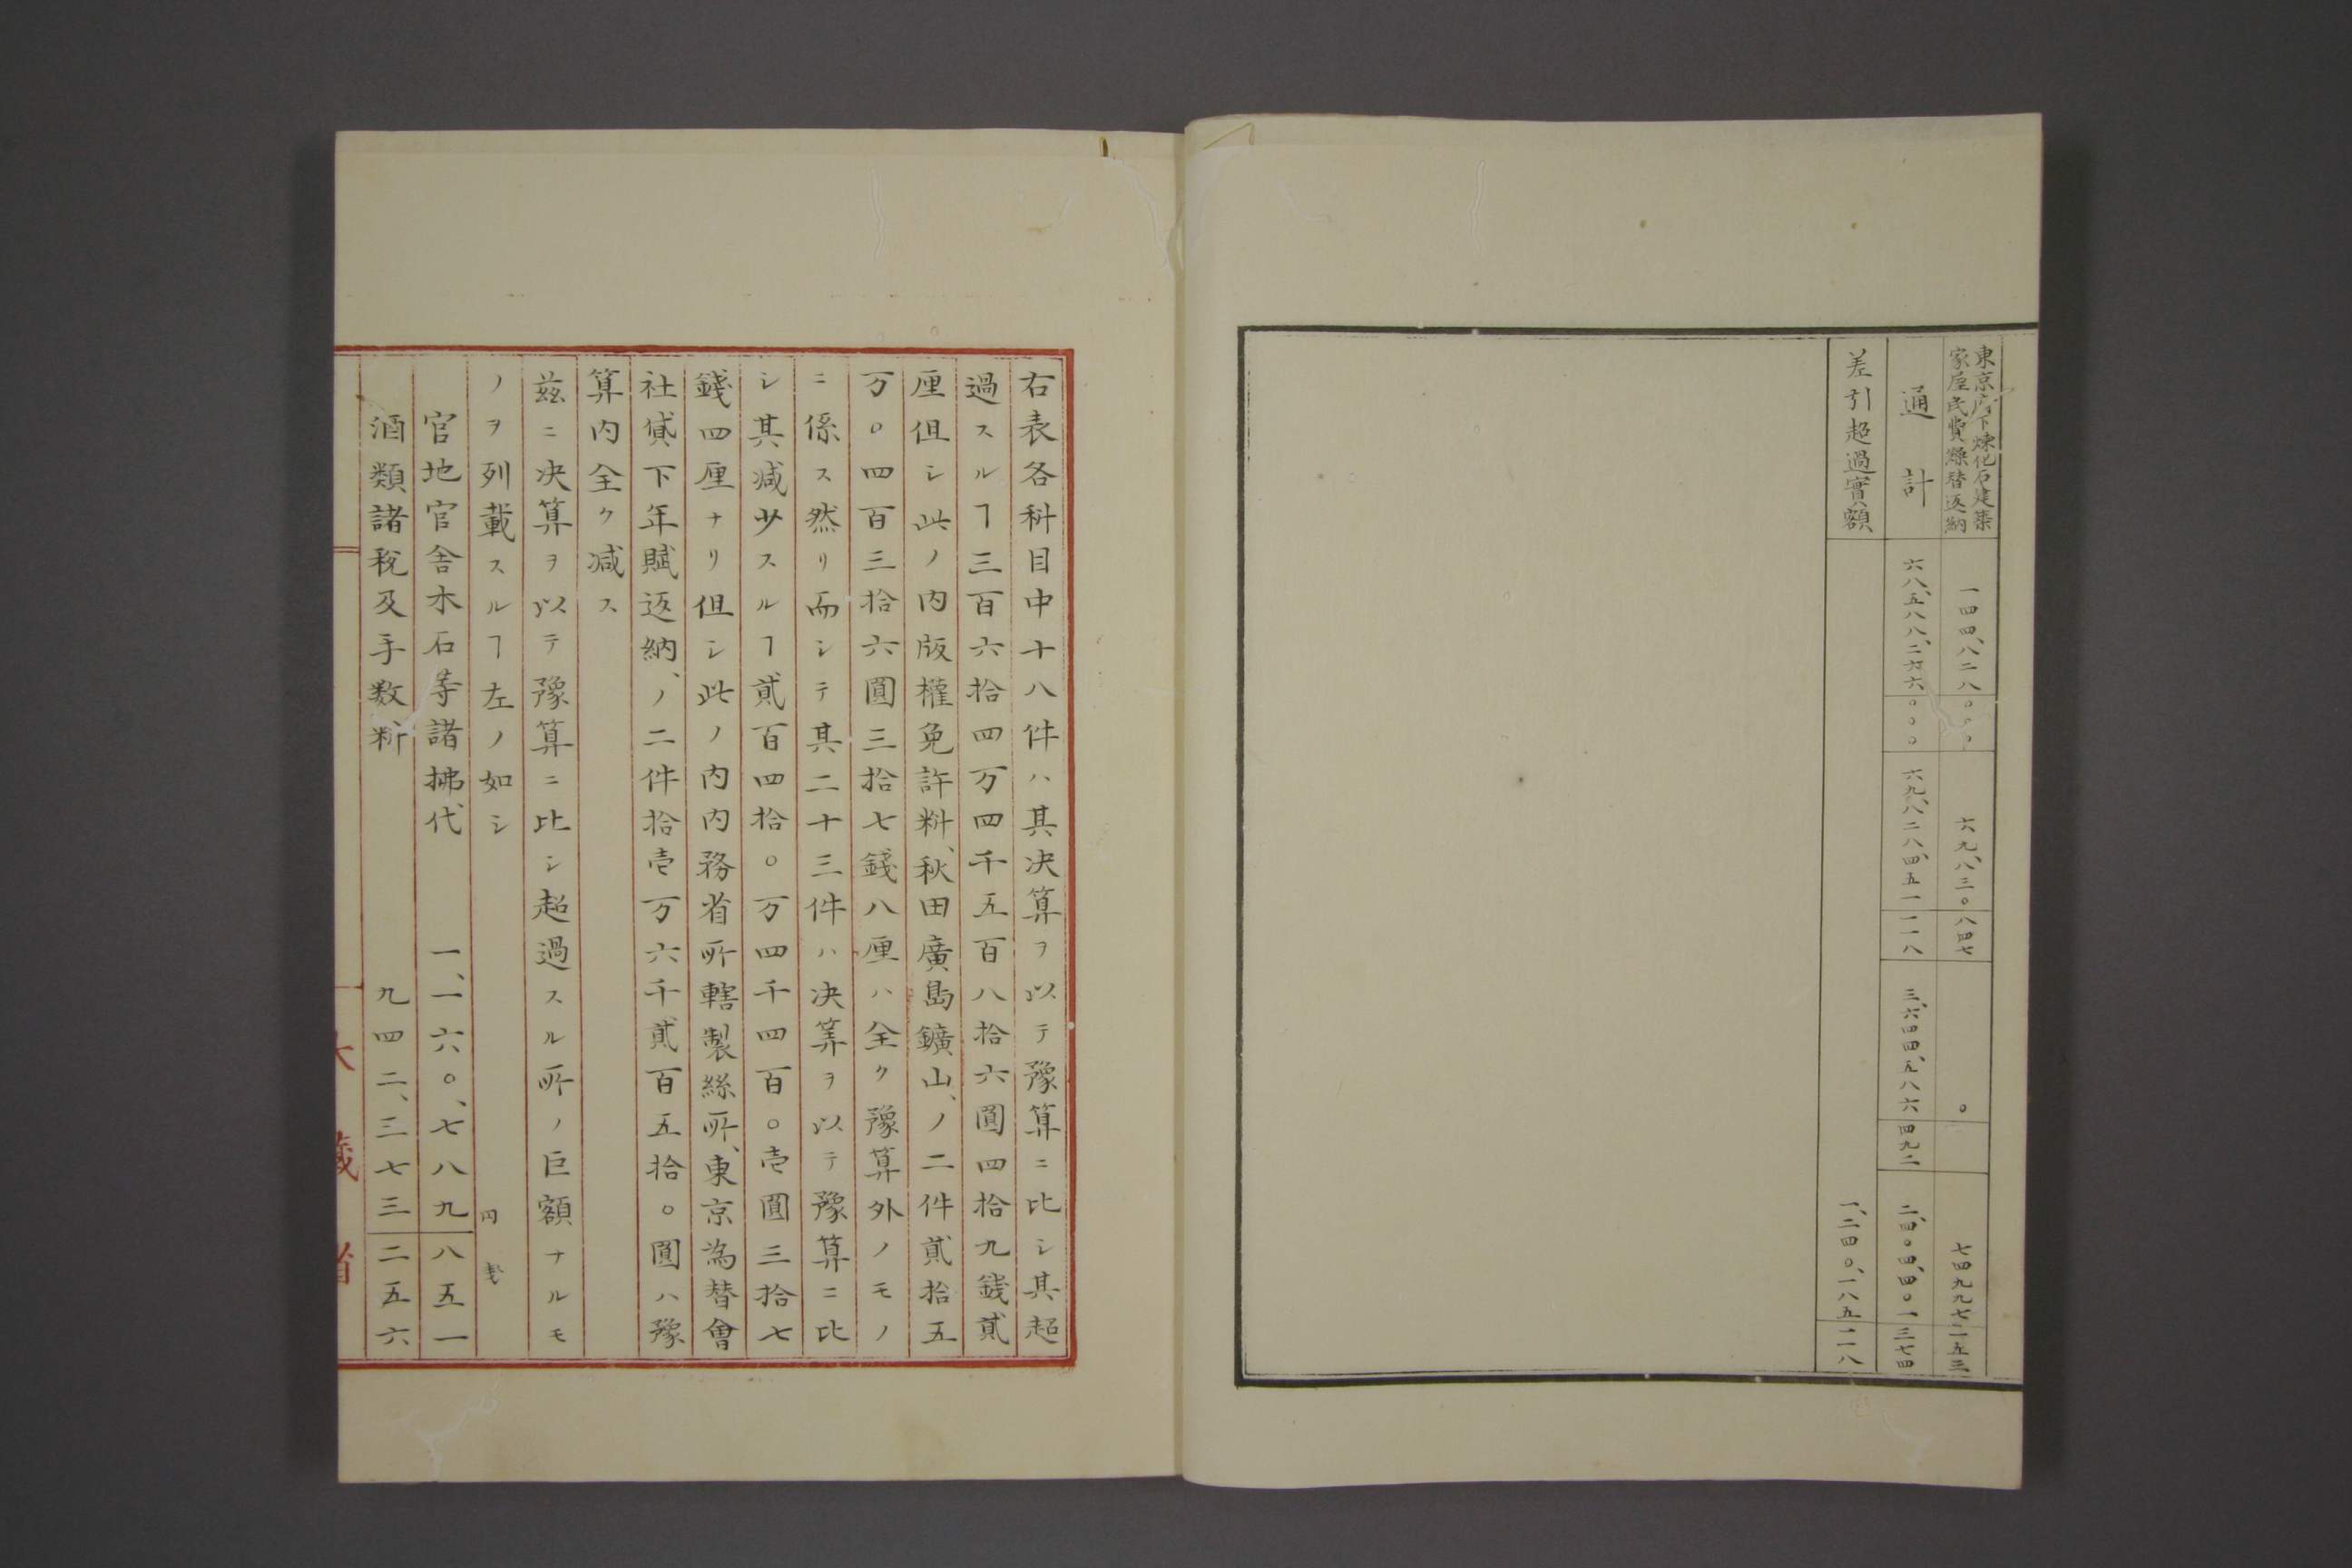 東京府下煉化石建築
家屋民費繰替返納
一四四、八二八
〇〇〇
六九、八三〇
八四七
〇
七四九九七
一五三
通計
六八、五八八、二六六
〇〇〇
六九、八二八、四五一
一一八
三、六四四、五八六
四九二
二、四〇四、四〇一
三七四
差引超過實額
一、二四〇、一八五
一一八
右表各科目中十八件ハ其决算ヲ以テ豫算ニ比シ其超
過スルヿ三百六拾四万四千五百八拾六圓四拾九錢貳
厘但シ此ノ内版權免許料、秋田廣島鑛山、ノ二件貳拾五
万〇四百三拾六圓三拾七錢八厘ハ全ク豫算外ノモノ
ニ係ス然リ而シテ其二十三件ハ决算ヲ以テ豫算ニ比
シ其減少スルヿ貳百四拾〇万四千四百〇壱圓三拾七
錢四厘ナリ但シ此ノ内内務省所轄製絲所、東京為替會
社貸下年賦返納、ノ二件拾壱万六千貳百五拾〇圓ハ豫
算内全ク減ス
茲ニ决算ヲ以テ豫算ニ比シ超過スル所ノ巨額ナルモ
ノヲ列載スルヿ左ノ如シ
円
官地官舎木石等諸拂代 一、一六〇、七八九 八五一
酒類諸税及手数料 九四二、三七三 二五六
大藏省